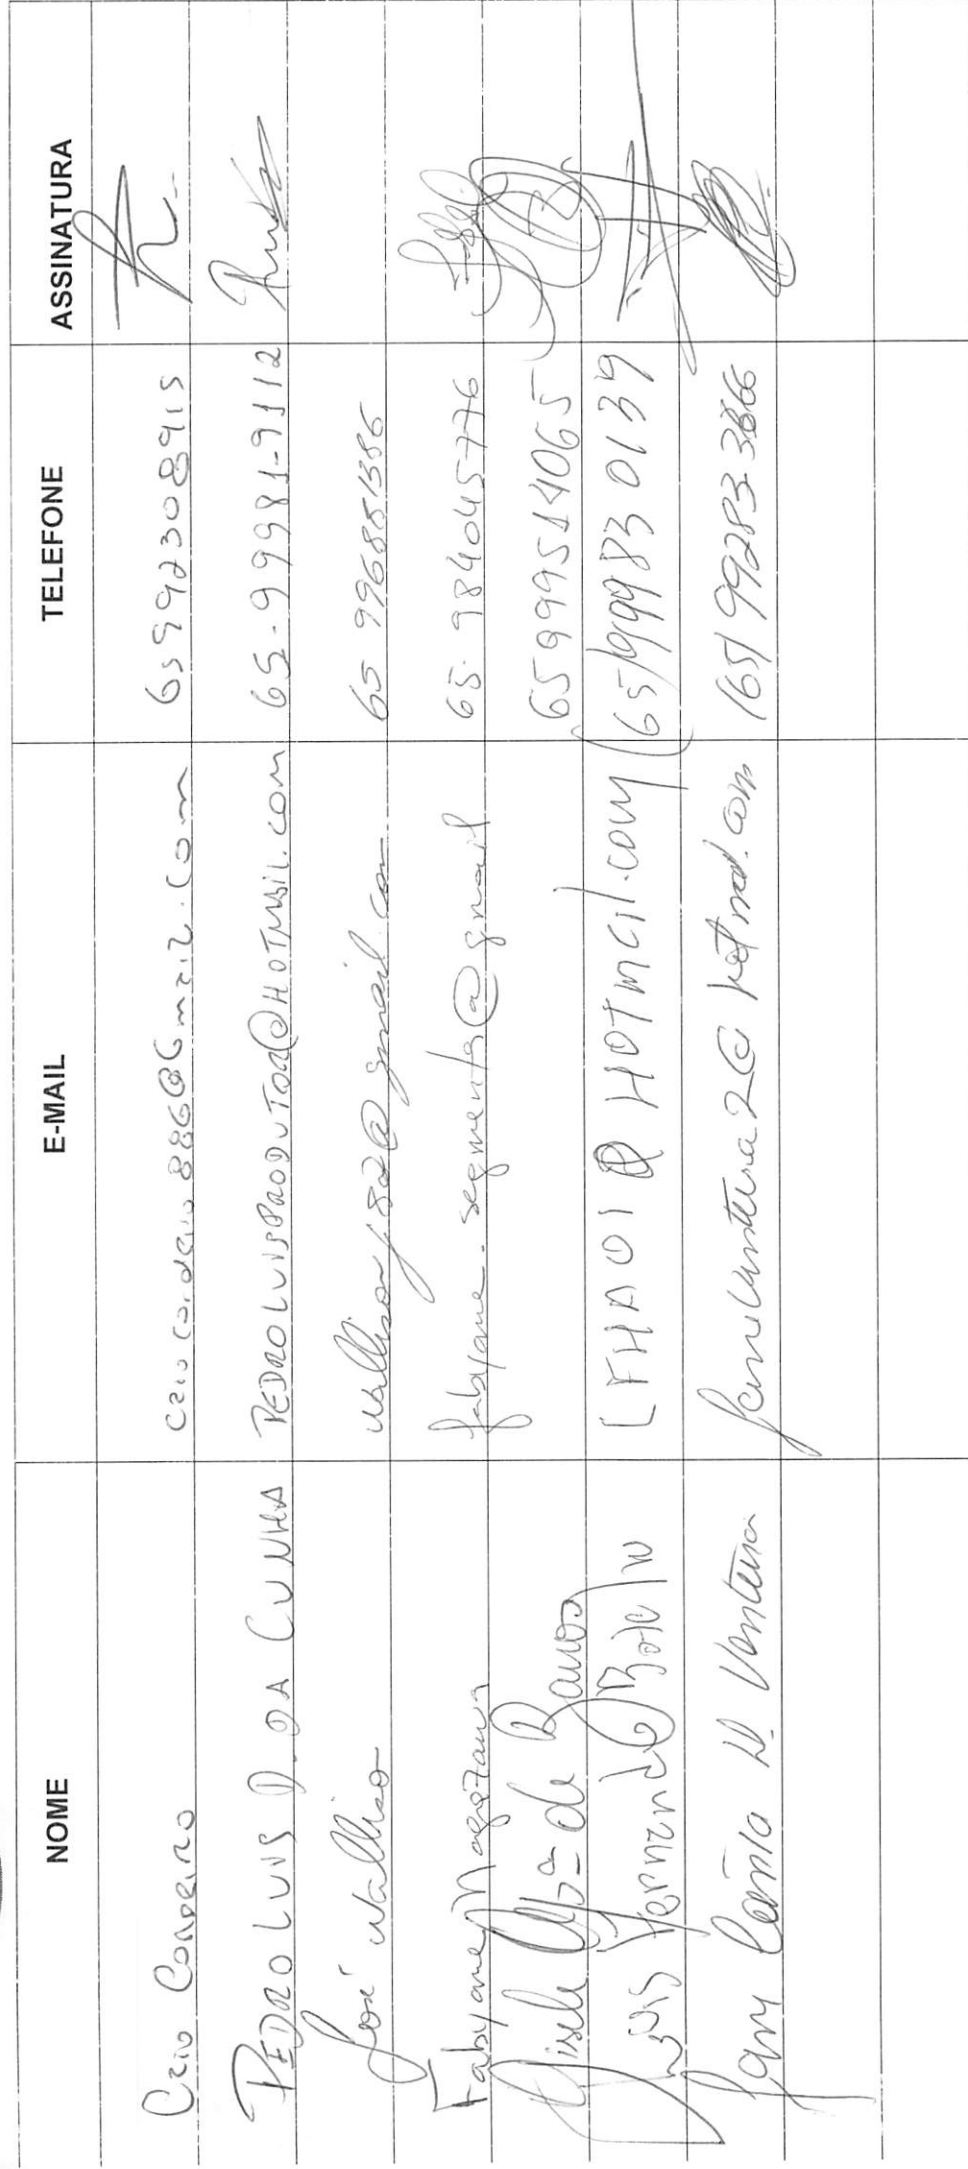 NOME E-MAIL TELEFONE ASSINATURA
Caio Cordeiro caiocordeiro886@Gmail.com 65992308915
PEDRO LUIS D. DA CUNHA PEDROLUISPRODUTOR@HOTMAIL.COM 65-99981-9112
José Wallison wallisonj82@gmail.com 65 996881386
Fabyane fabyane.segmento@gmail 65-984045776
Gisele de Barros 65999514065
Luis Fernando LFHAOI@HOTMAIL.COM (65)999830139
Jany Ventura janeventura2@hotmail.com (65) 99283-3666